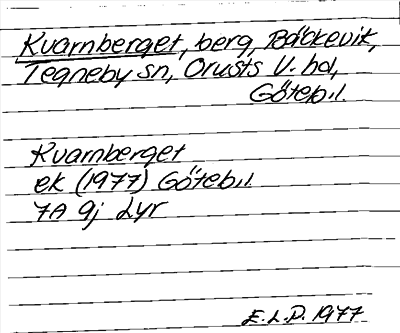 Kvarnberget, berg, Bäckevik,
Tegneby sn, Orusts V. hd,
Götebl.
Kvarnberget
ek (1977) Götebl
7A 9j Lyr
E.L.P. 1977